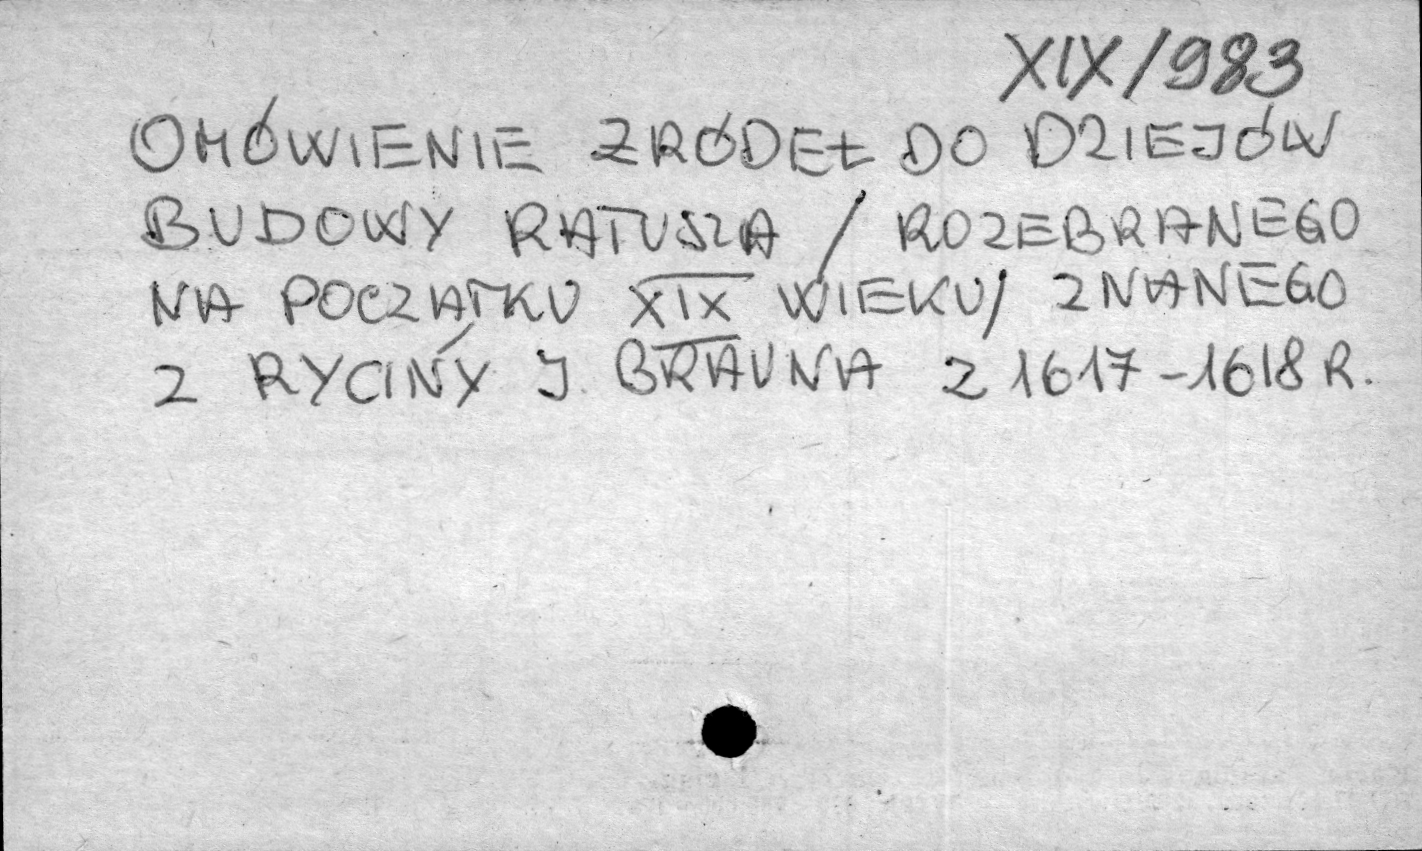 XIX/983
OMÓWIENIE ZRÓDEŁ DO DZIEJÓW
BUDOWY RATUSZA / ROZEBRANEGO
NA POCZATKU XIX WIEKU/ ZNANEGO
Z RYCINY J. BRAUNA Z 1617-1618 R.